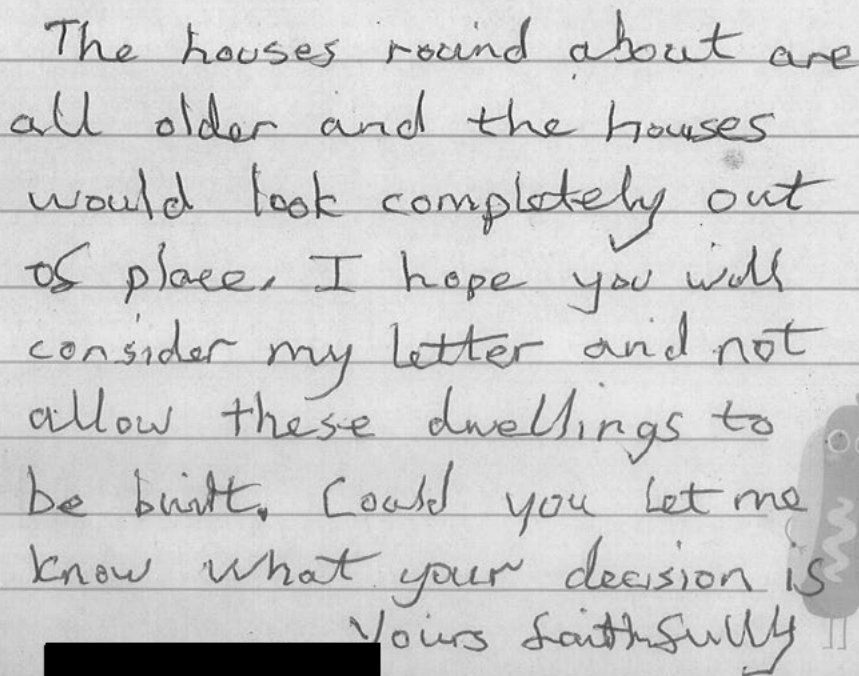 The houses round about are
all older and the houses
would look completely out
of place. I hope you will
consider my letter and not
allow these dwellings to
be built. Could you let me
know what your decision is
Yours faithfully